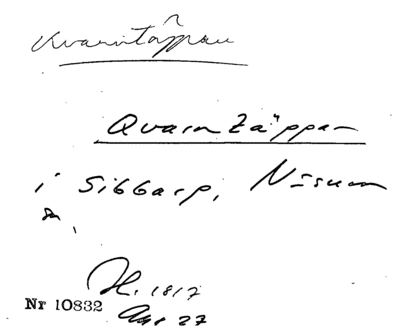 Kvarntäppan
Qvarntäppan
i Sibbarp, Nösum
sn,
H. 1817
Aug 27
Nr 10832